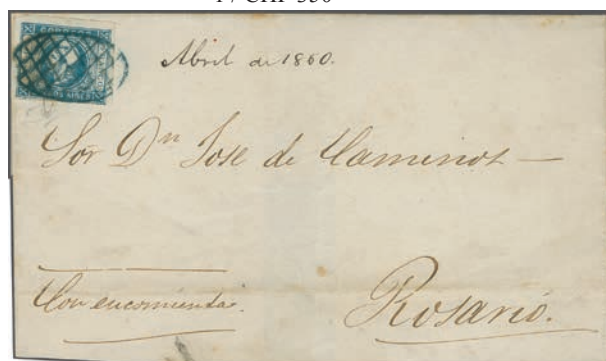 Abril de 1860.
Sor Dn Jose de Caminos —
Con encomienda.
Rosario.